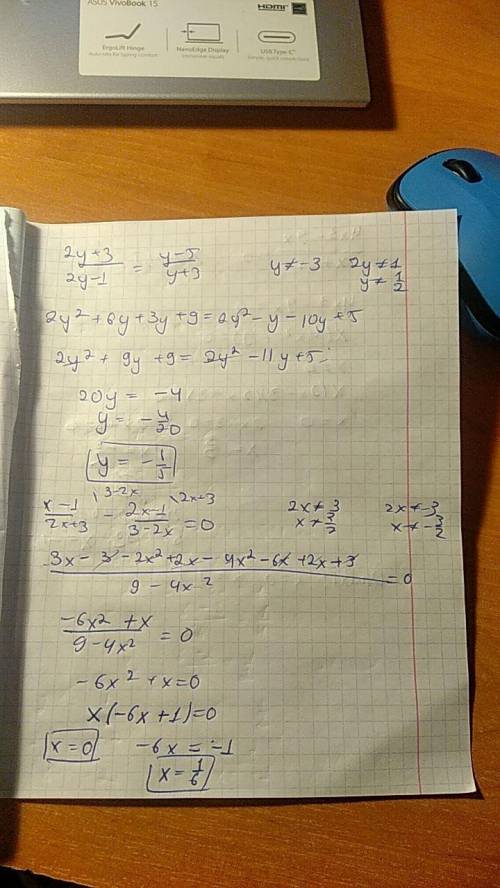 ASUS VivoBook 15
HDMI
ErgoLift Hinge
NanoEdge Display
USB Type-C
(2y+3)/(2y-1) = (y-5)/(y+3)   y≠-3   2y≠1
y≠1/2
2y² + 6y + 3y + 9 = 2y² - y - 10y + 5
2y² + 9y + 9 = 2y² - 11y + 5
20y = -4
y = -4/20
y = -1/5
(x-1)/(2x+3) \3-2x - (2x-1)/(3-2x) \2x+3 = 0   2x≠3   2x≠-3
x≠3/2   x≠-3/2
(3x - 3 - 2x² + 2x - 4x² - 6x + 2x + 3)/(9 - 4x²) = 0
(-6x² + x)/(9 - 4x²) = 0
-6x² + x = 0
x(-6x+1)=0
x=0   -6x = -1
x = 1/6